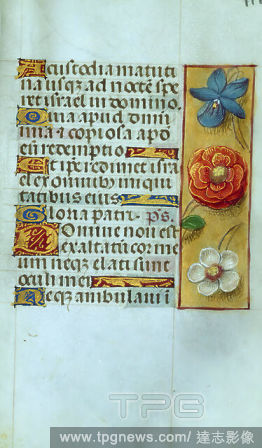 A custodia matuti
na usq; ad noctē spe
ret israel in domino.
Quia apud dnm̄ mi
na & copiosa apd
eū redemptio
Et ipe redimet isra
el ex omnibus iniqui
tatibus eius
Gloria patri. ps.
Domine non est
exaltatū cor me
um neqz elati sunt
oculi mei
Neqz ambulaui i
TPG
www.tpgnews.com/達志影像